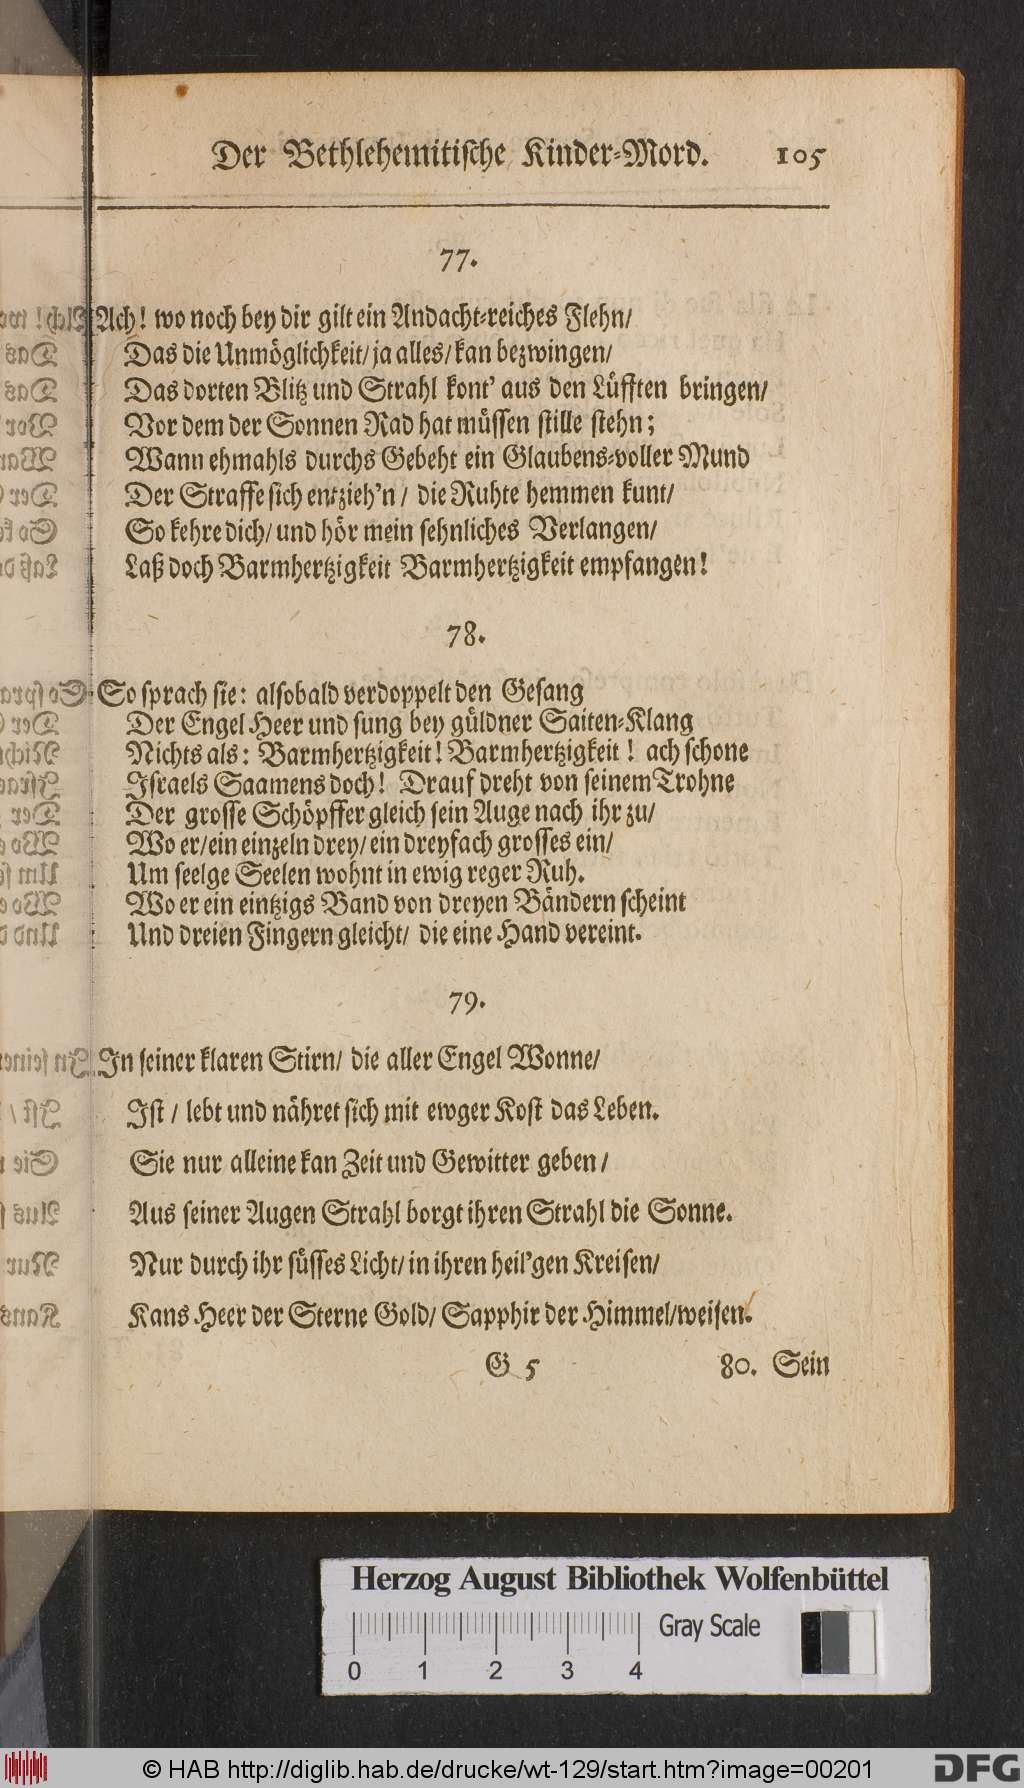 Der Bethlehemitische Kinder-Mord. 105
77.
Ach! wo noch bey dir gilt ein Andacht-reiches Flehn/
Das die Unmöglichkeit/ ja alles/ kan bezwingen/
Das dorten Blitz und Strahl kont' aus den Lüfften bringen/
Vor dem der Sonnen Rad hat müssen stille stehn;
Wann ehmahls durchs Gebeht ein Glaubens-voller Mund
Der Straffe sich entzieh'n / die Ruhte hemmen kunt/
So kehre dich/ und hör mein sehnliches Verlangen/
Laß doch Barmhertzigkeit Barmhertzigkeit empfangen!
78.
So sprach sie: alsobald verdoppelt den Gesang
Der Engel Heer und sung bey güldner Saiten-Klang
Nichts als: Barmhertzigkeit! Barmhertzigkeit! ach schone
Israels Saamens doch! Drauf dreht von seinem Trohne
Der grosse Schöpffer gleich sein Auge nach ihr zu/
Wo er/ ein einzeln drey/ ein dreyfach grosses ein/
Um seelge Seelen wohnt in ewig reger Ruh.
Wo er ein eintzigs Band von dreyen Bändern scheint
Und dreien Fingern gleicht/ die eine Hand vereint.
79.
In seiner klaren Stirn/ die aller Engel Wonne/
Ist / lebt und nähret sich mit ewger Kost das Leben.
Sie nur alleine kan Zeit und Gewitter geben /
Aus seiner Augen Strahl borgt ihren Strahl die Sonne.
Nur durch ihr süsses Licht/ in ihren heil'gen Kreisen/
Kans Heer der Sterne Gold/ Sapphir der Himmel/ weisen.
G 5 80. Sein
Herzog August Bibliothek Wolfenbüttel
Gray Scale
0 1 2 3 4
© HAB http://diglib.hab.de/drucke/wt-129/start.htm?image=00201
DFG